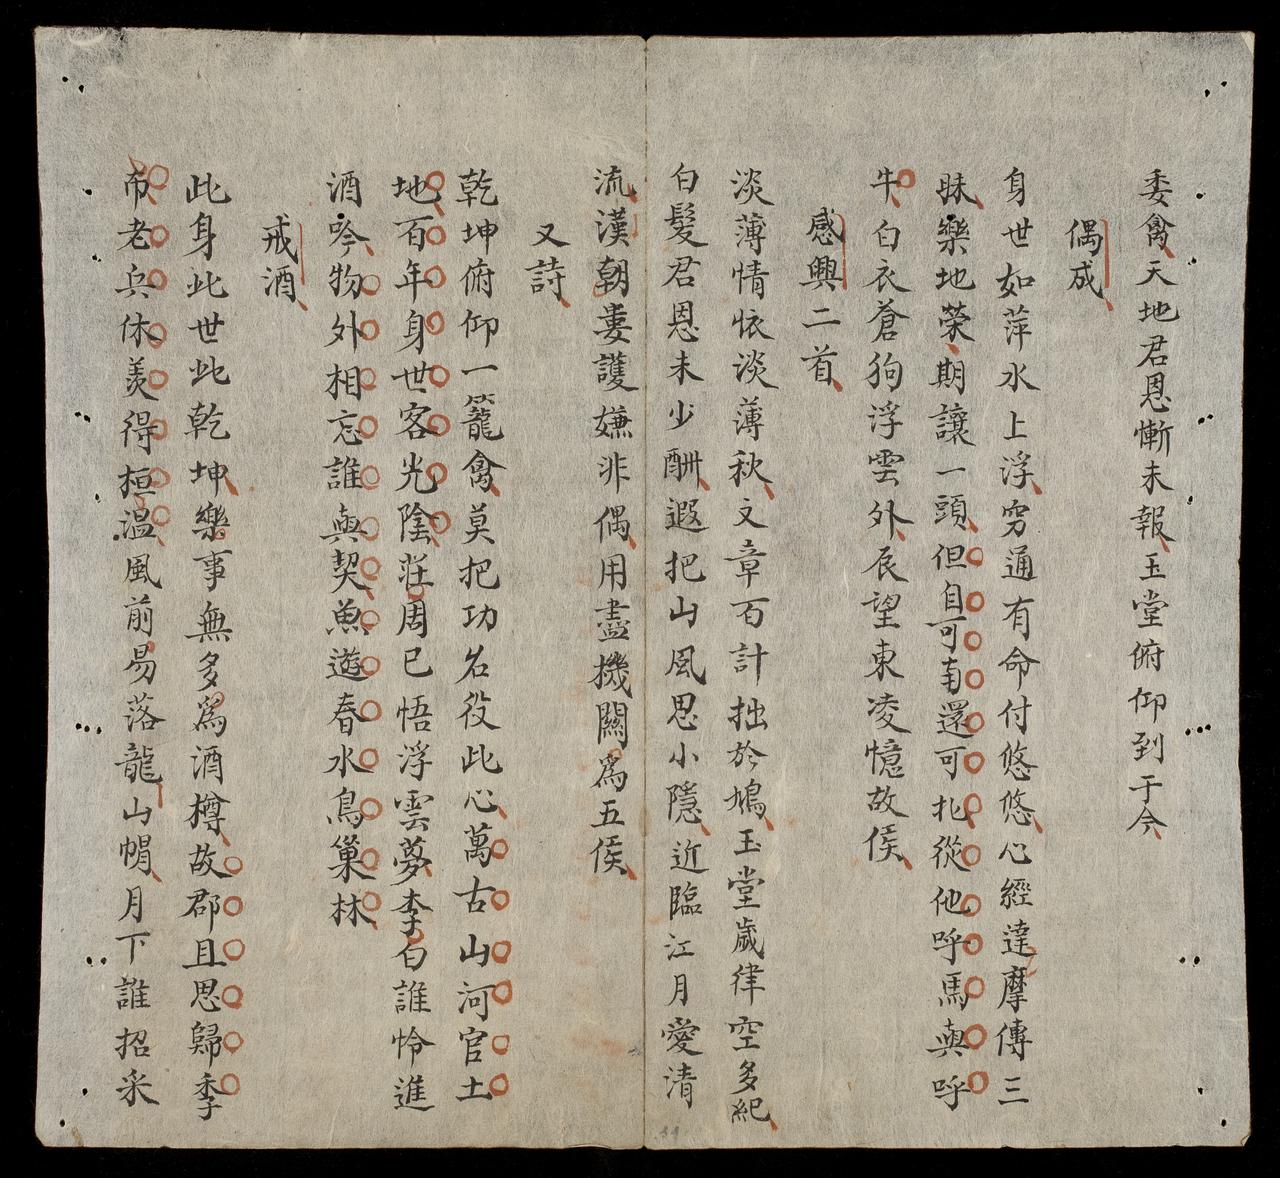 委禽天地君恩慚未報玉堂俯仰到于今
偶成
身世如萍水上浮穷通有命付悠悠心經達摩傳三
昧樂地荣期讓一頭但自可南還可北從他呼馬與呼
牛白衣蒼狗浮雲外辰望東凌憶故侯
感興二首
淡薄情懷淡薄秋文章百計拙於鳩玉堂歲律空多紀
白髮君恩未少酬遐把山風思小隱近臨江月愛清
流漢朝婁護嫌非偶用盡機關為五侯
又詩
乾坤俯仰一籠禽莫把功名役此心萬古山河官土
地百年身世客光陰莊周已悟浮雲夢李白誰怜進
酒吟物外相忘誰與契魚遊春水鳥巢林
戒酒
此身此世此乾坤樂事無多為酒樽故郡且思歸季
布老兵休羨得桓温風前易落龍山帽月下誰招采